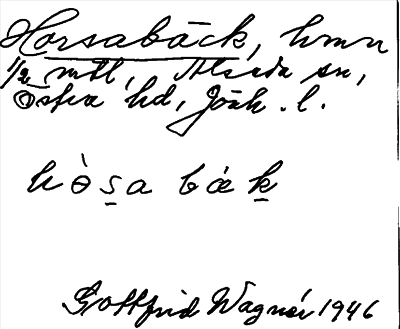 Horsabäck, hmn
1/2 mtl, Alseda sn,
Östra hd, Jönk. l.
hòṣa bæḵ
Gottfrid Wagnér 1946